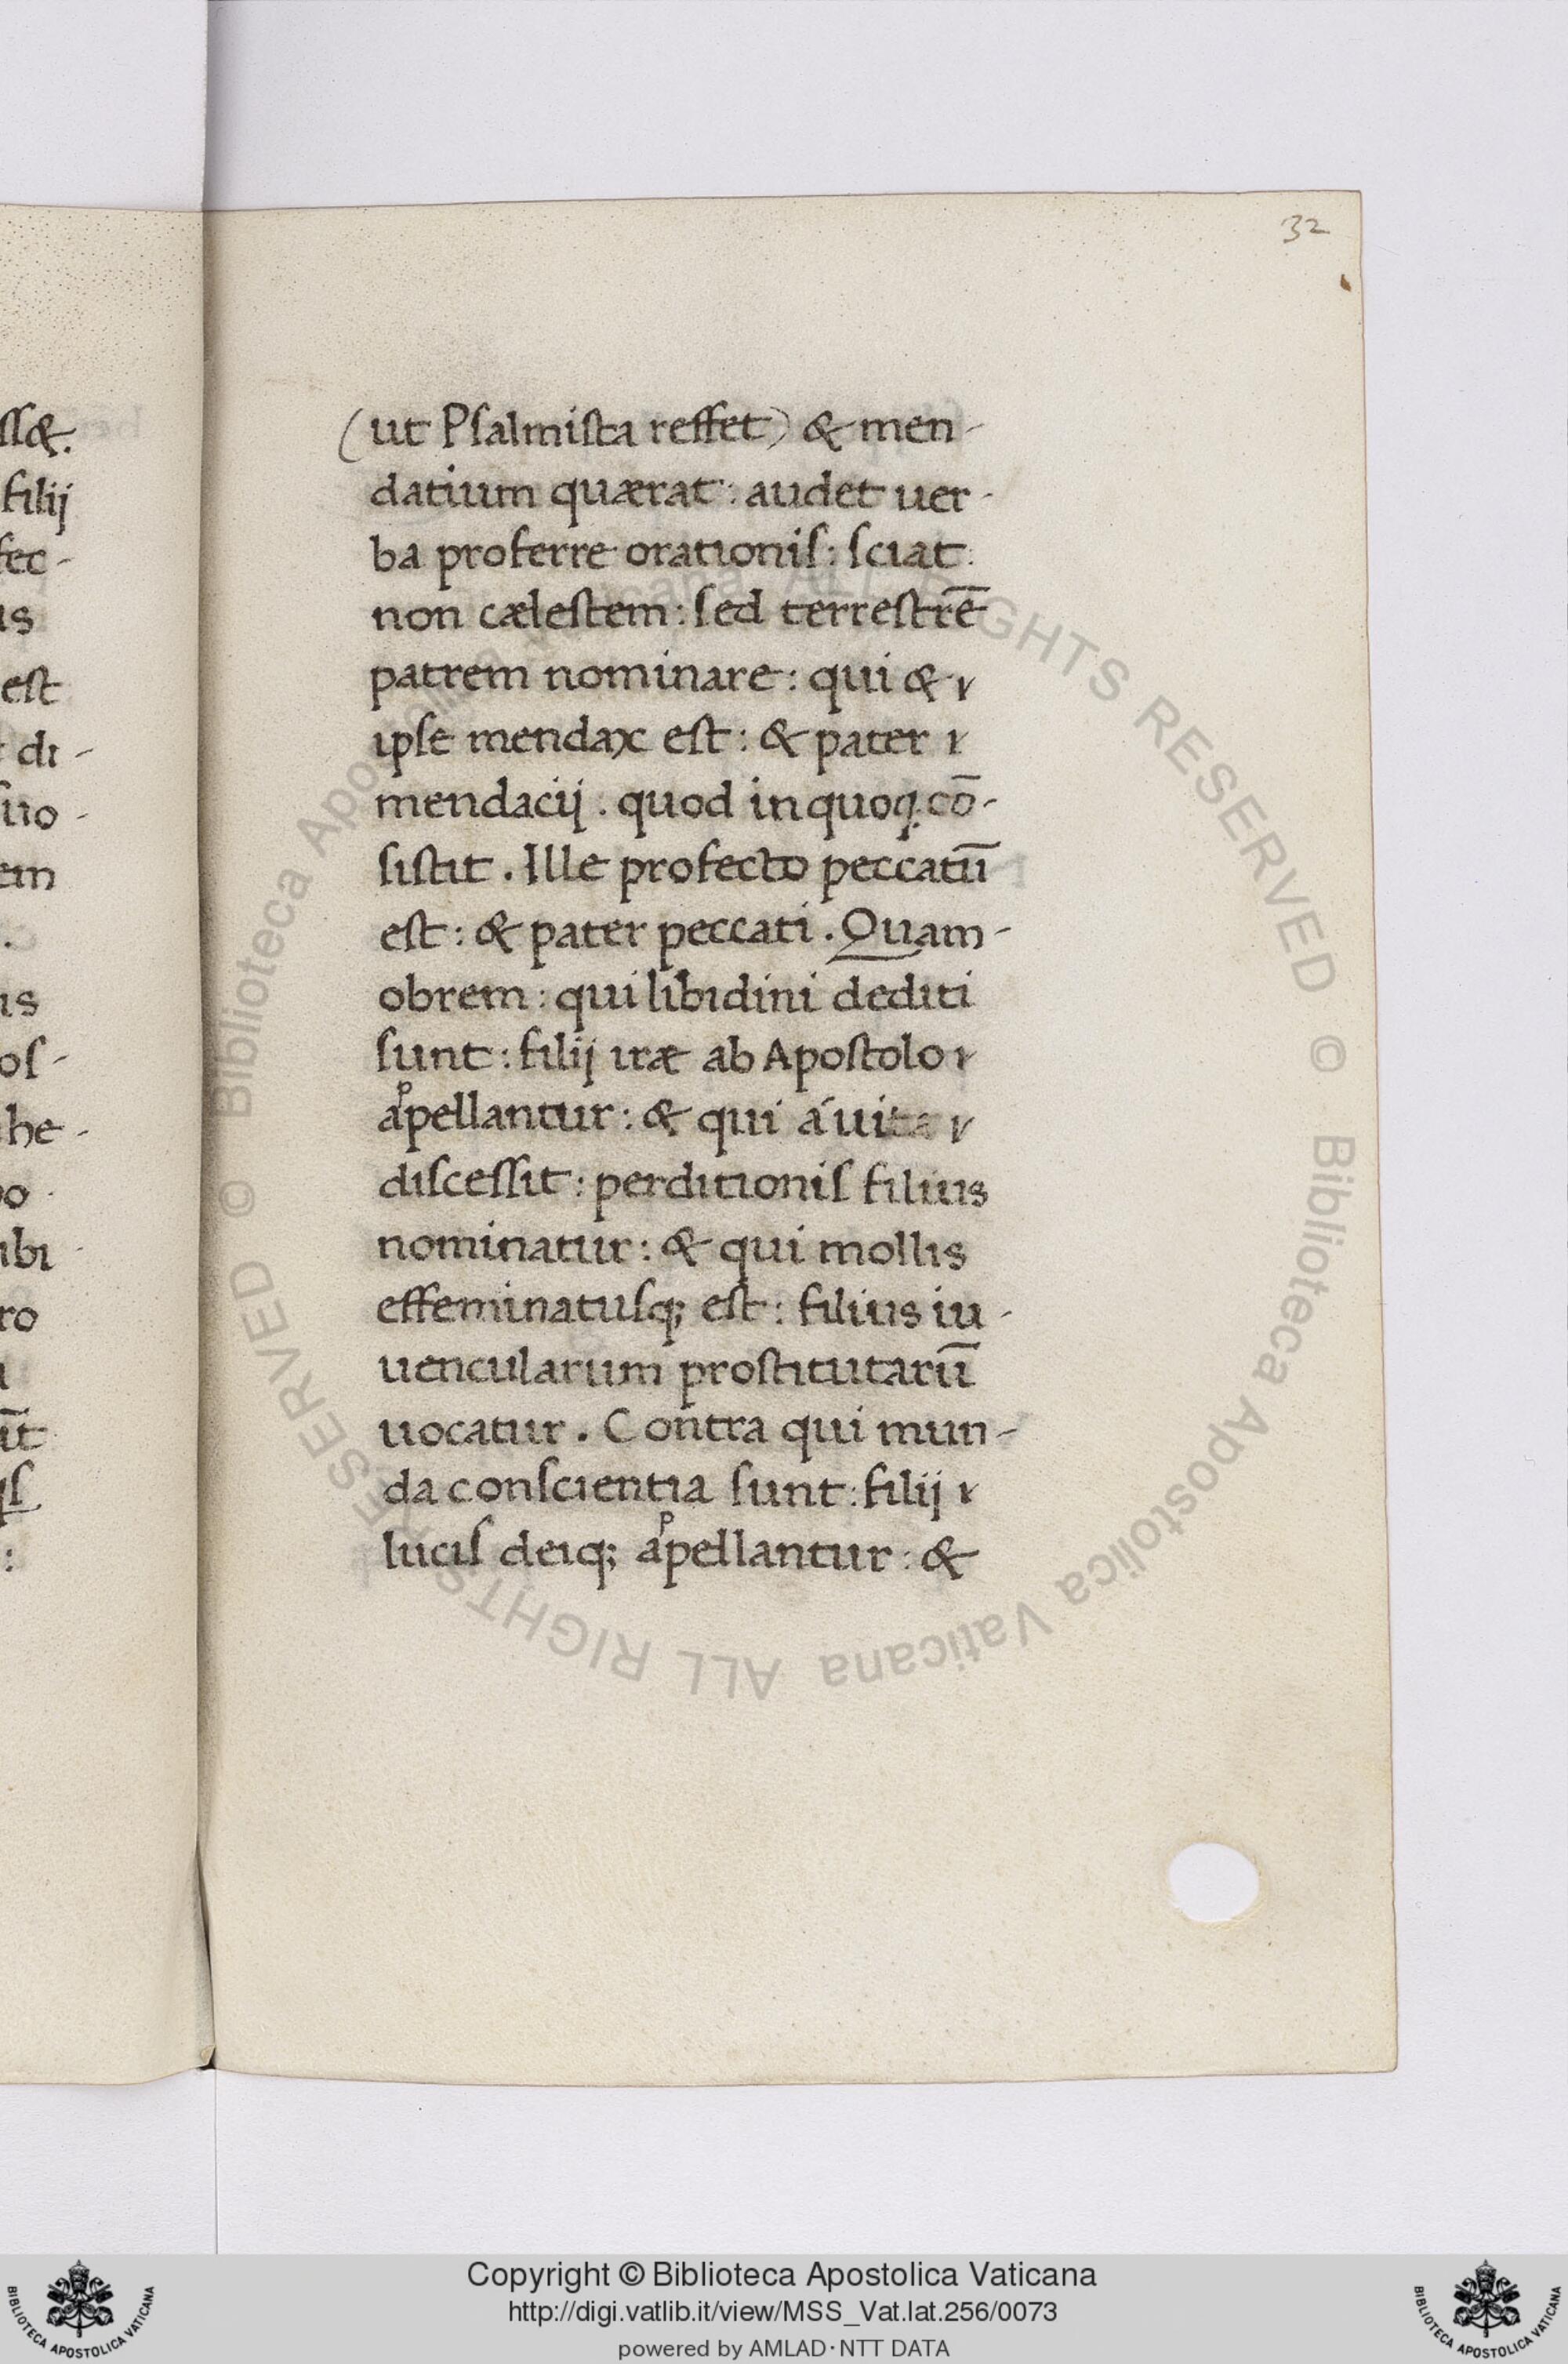 32
(ut Psalmista reffet) & men-
datium quærat: audet uer-
ba proferre orationis: sciat
non cælestem: sed terrestrē
patrem nominare: qui &
ipse mendax est: & pater
mendacij. quod in quoq. cō-
sistit. Ille profecto peccatū
est: & pater peccati. Quam-
obrem: qui libidini dediti
sunt: filij iræ ab Apostolo
appellantur: & qui á uita
discessit: perditionis filius
nominatur: & qui mollis
effeminatusq; est: filius iu-
uencularum prostitutarū
uocatur. Contra qui mun-
da conscientia sunt: filij
lucis deiq; appellantur: &
filij
fec-
us
est
di-
em
us
os-
he-
ibi
ro
Copyright © Biblioteca Apostolica Vaticana
http://digi.vatlib.it/view/MSS_Vat.lat.256/0073
powered by AMLAD·NTT DATA
BIBLIOTECA APOSTOLICA VATICANA
BIBLIOTECA APOSTOLICA VATICANA
© Biblioteca Apostolica Vaticana ALL RIGHTS RESERVED © Biblioteca Apostolica Vaticana ALL RIGHTS RESERVED